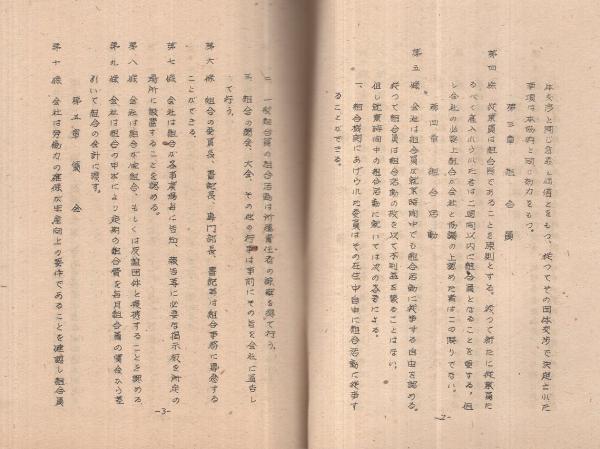 体交渉と同じ意義と価値とをもつ、従つてその団体交渉で決定された
事項は本協約と同じ効力をもつ。
第三章　組合員
第四條　従業員は組合員であることを原則とする。従つて新たに従業員た
るべく雇入れられた者は二週間以内に組合員となることを要する。但
し会社の必要上組合が会社と協議の上認めた者はこの限りでない。
第四章　組合活動
第五條　会社は組合員が就業時間中でも組合活動に従事する自由を認める。
従つて組合員は組合活動の故を以て不利益を蒙ることはない。
但し就業時間中の組合活動に就いては次の各号による。
一、組合規約にあげられた委員はその在任中自由に組合活動に従事す
ることができる。
-2-
二、一般組合員の組合活動は所属責任者の諒解を得て行う。
三、組合の総会、大会、その他の行事は事前にその旨を会社に通告し
て行う。
第六條　組合の委員長、書記長、専門部長、書記等は組合事務に専念する
ことができる。
第七條　会社は組合が各事業場毎に告知、報告等に必要な掲示板を所定の
場所に設置することを認める。
第八條　会社は組合が他組合、もしくは友誼団体と提携することを認める
第九條　会社は組合の申出により定期の組合費を毎月組合員の賃金から差
引いて組合の会計に渡す。
第五章　賃金
第十條　会社は労働力の確保が生産向上の要件であることを確認し組合員
-3-